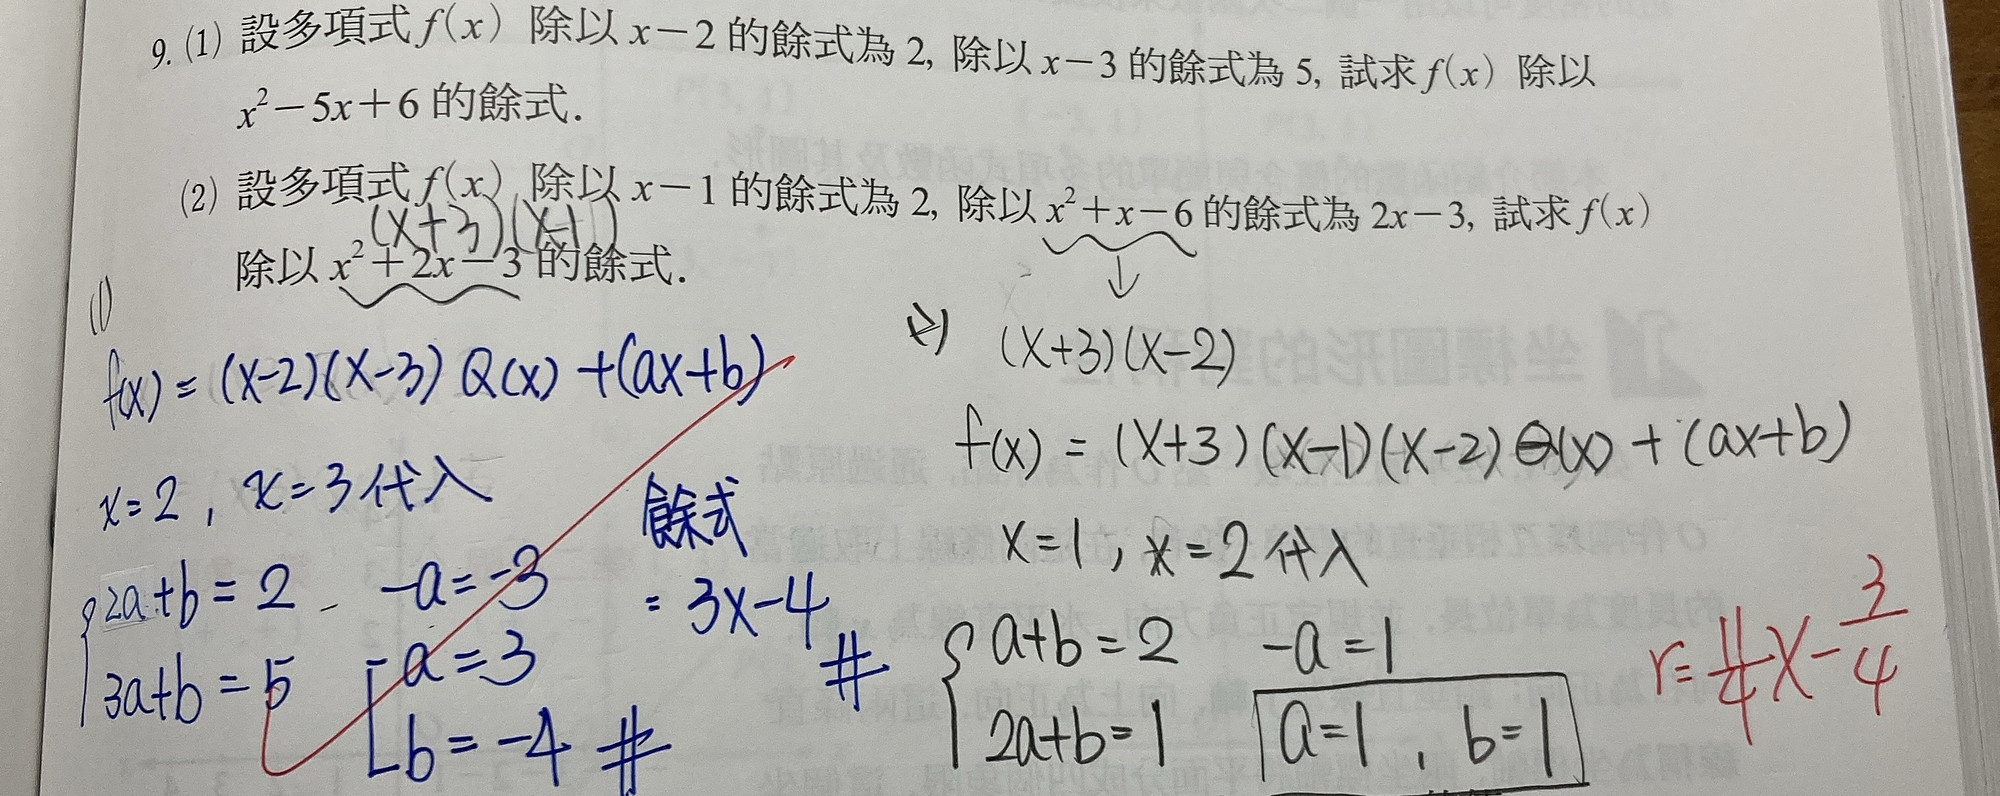 9. (1) 設多項式 f(x) 除以 x−2 的餘式為 2, 除以 x−3 的餘式為 5, 試求 f(x) 除以
x²−5x+6 的餘式.
(2) 設多項式 f(x) 除以 x−1 的餘式為 2, 除以 x²+x−6 的餘式為 2x−3, 試求 f(x)
(x+3)(x-1)
除以 x²+2x−3 的餘式.
(1)
f(x) = (x-2)(x-3) Q(x) + (ax+b)
x=2, x=3代入
2a+b=2
3a+b=5
-a=-3
a=3
b=-4 #
餘式
= 3x-4
#
2)
(x+3)(x-2)
f(x) = (x+3)(x-1)(x-2) Q(x) + (ax+b)
x=1, x=2代入
a+b=2
2a+b=1
-a=1
a=1, b=1
r= 11/4 x - 3/4